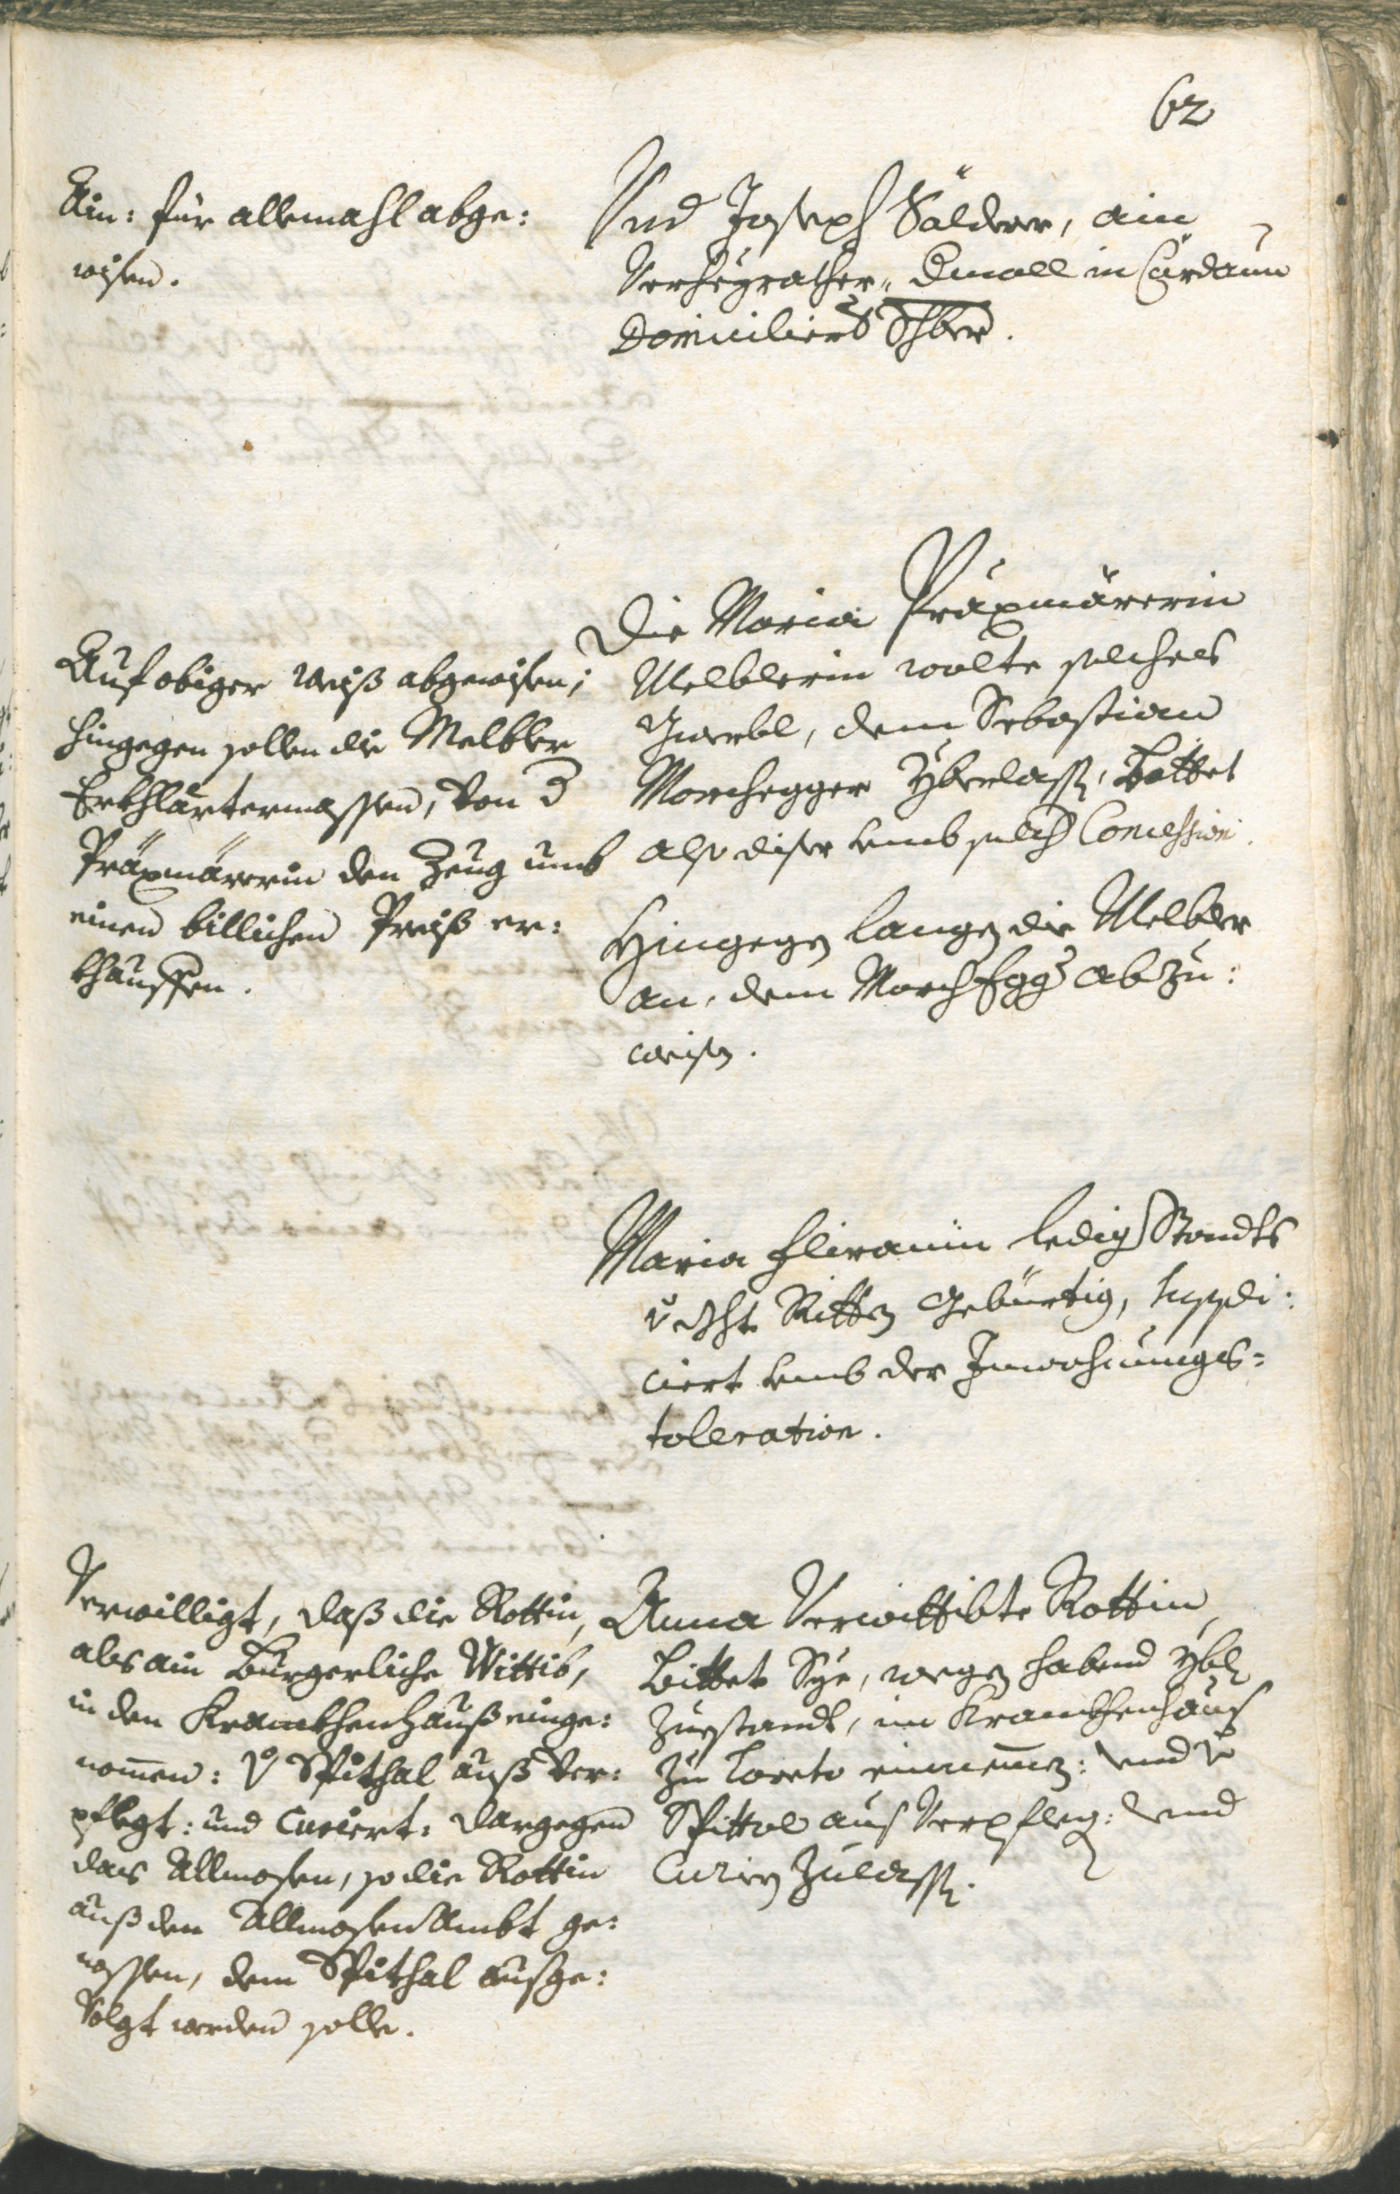 62
Ain: für allemahl abge:
wisen.
Und Joseph Sälderer, ain
Verheyrather, dmall in Cardaun
Domicilierd Schber.
Auf obiger weiß abgewisen,
hingegen sollen die Melbler
Erkhlärtermassen, von d
Präxmärerin den Zeug umb
einen billichen Preiß er:
khauffen.
Die Maria Präxmärerin
Melblerin wolte solches
Gwerbl, dem Sebastian
Morchegger yberlassen, Bittet
also diser umb solch Concession.
Hingegen langen die Melbler
an, dem Morchegger abzu:
weisen.
Maria Fliranin ledig Standts
Ritten gebürtig, suppli:
ciert umb der Inwohnungs=
toleration.
Verwilligt, daß die Rottin,
als ain Burgerliche Wittib,
in den Krankhenhauß einge:
nommen: v Spithal auß ver:
pflegt: und curiert: dargegen
das Allmosen, so die Rottin
auß den Allmosen Ambt ge:
nossen, dem Spithal außge:
volgt werden solle.
Anna Verwittibte Rottin
Bittet Sye, wegen habend ybl
Zuestandt, im Krankhenhaus
zu Loreto einnemen: und v
Spittal aus verpflegen: und
Curien zulassen.